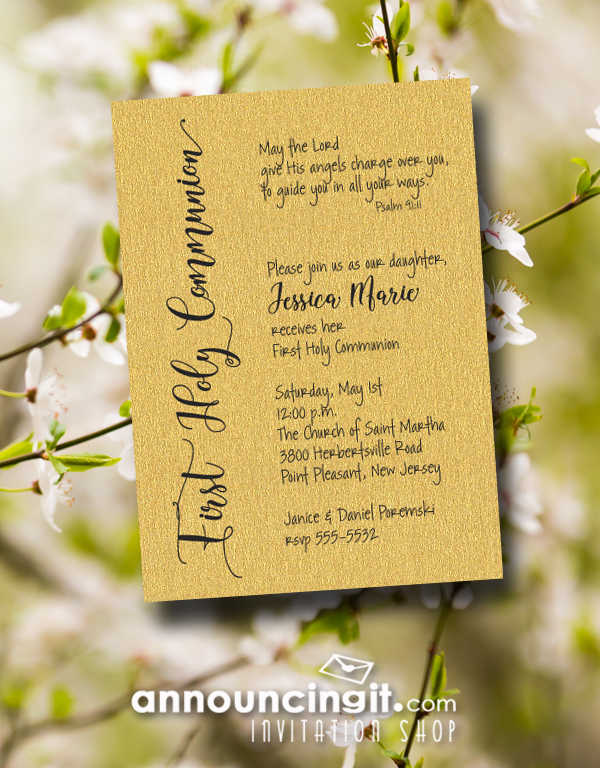 First Holy Communion
May the Lord
give His angels charge over you,
to guide you in all your ways.
Psalm 91:11
Please join us as our daughter,
Jessica Marie
receives her
First Holy Communion
Saturday, May 1st
12:00 p.m.
The Church of Saint Martha
3800 Herbertsville Road
Point Pleasant, New Jersey
Janice & Daniel Poremski
rsvp 555-5532
announcingit.com
INVITATION SHOP